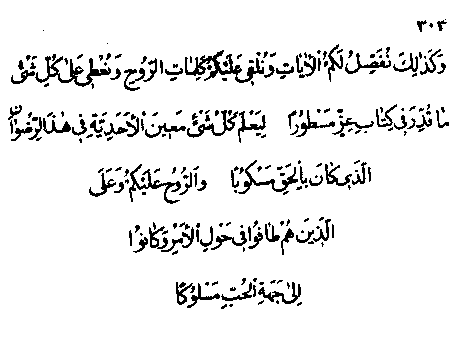 ٣٠٣
وَكَذٰلِكَ نُفَصِّلُ لَكُمُ الْاٰيَاتِ وَنُلْقِي عَلَيْكُمْ كَلِمَاتِ الرُّوحِ وَنُعْطِي عَلىٰ كُلِّ شَئٍ
مَا قُدِّرَ فِي كِتَابِ عِزٍّ مَسْطُورًا لِيَعْلَمَ كُلُّ شَئٍ مَعِينَ الْاَحَدِيَّةِ فِي هٰذَا الرِّضْوَانِ
الَّذِي كَانَ بِالْحَقِّ مَسْكُوبًا وَالرُّوحُ عَلَيْكُمْ وَعَلَى
الَّذِينَ هُمْ طَافُوا فِي حَوْلِ الْاَمْرِ وَكَانُوْا
اِلىٰ جَهَةِ الْحُبِّ مَسْلُوكًا